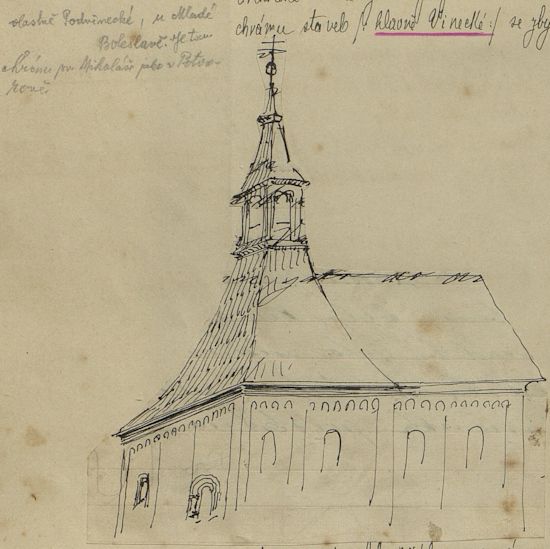 vlastně Podvinecké, u Mladé
Boleslavě. Je tam
chrám sv. Mikuláše jako v Potvo-
rově
chrámu staveb /: hlavně Vinecké :/ se